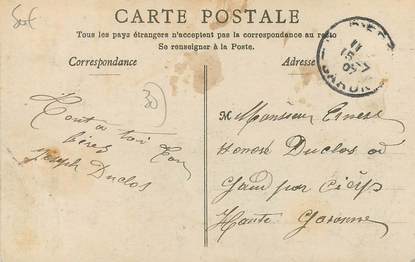 CARTE POSTALE
Tous les pays étrangers n'acceptent pas la correspondance au recto
Se renseigner à la Poste.
Correspondance
Adresse
30
Tout a toi ton
Joseph Duclos
M Monsieur Ernest
Honoré Duclos a
par
Haute Garonne
11
15 -7
05
GARON